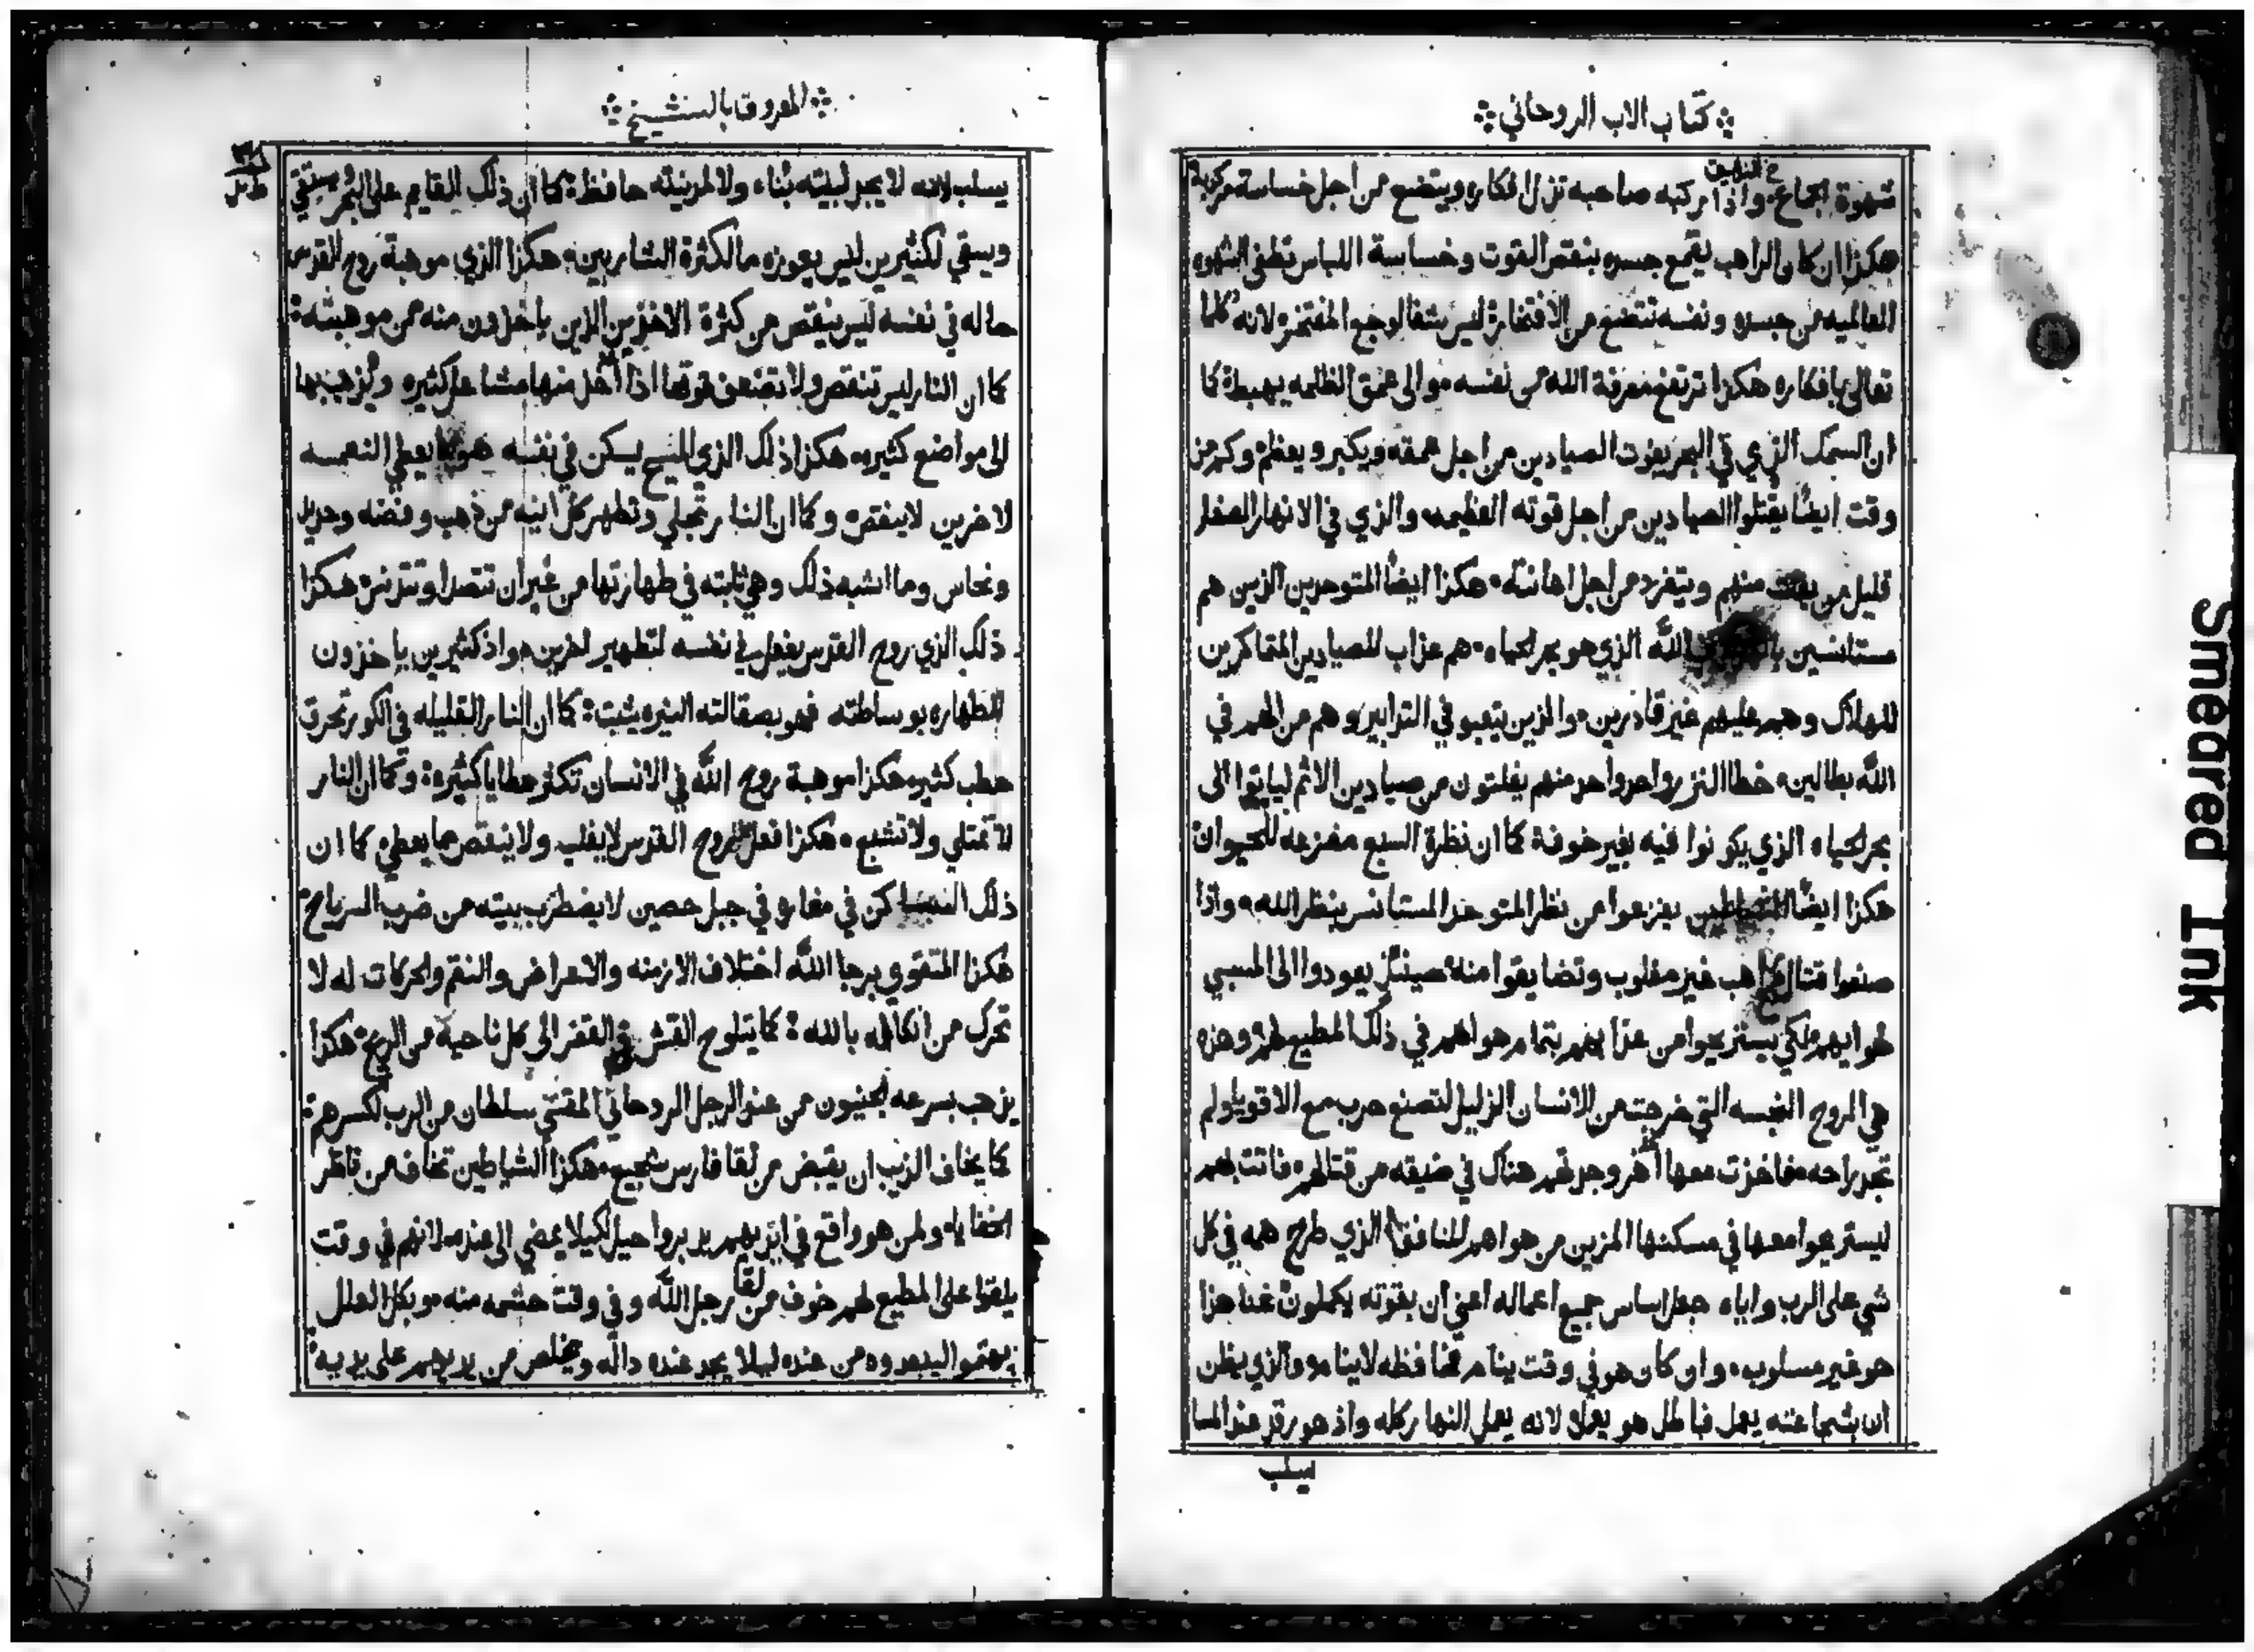 كتاب الاب الروحاني
شهوة الجماع. واذا ركبه صاحبه تزل افكاره ويتضع من اجل خساسة مركوبه
هكذا ان كان الراهب يقمع جسده بنقص القوت وخساسة اللباس تطفى الشهوه
العالميه من جسده ونفسه تتضع من الافتخار: ليس يشفا لوجع المفتخر لانه كلما
تعالى بافكاره هكذا ترتفع معرفة الله من نفسه والى عمق الظلمه يهبط: كما
ان السمك الذي في البحر يفزت الصيادين من اجل عمقه ويكبر ويعظم وكم من
وقت ايضا يقتلوا الصيادين من اجل قوته العظيمه والذي في الانهار الصغار
قليل من يفلت منهم ويتفرد من اجل اهانته. هكذا ايضا المتوحدين الذين هم
مستانسين الله الذي هو بحر الحياه. هم عذاب للصيادين المتماكرين
للهلاك وهم عليهم غير قادرين. والذين يتعبو في التدابير وهم من الهم في
الله بطالين. خطا النزر واحد واحد منهم يفلتون من صيادين الاثم لياتوا الى
بحر الحياه الذي يكونوا فيه بغير خوفة كما ان نظرة السبع مفزعه للحيوان
هكذا ايضا الشياطين يفزعوا من نظر المتوحد المستانس بنظر الله. واذا
صنعوا قتال الراهب غير مغلوب وتضايقوا منه حينئذ يعودوا الى المسبي
لهواهم لكي يستريحوا من عذابهم بتمام هواهم في ذلك المطيع لهم وهذه
هي الروح النجسه التي خرجت من الانسان الذليل لتصنع حرب مع الاقويا ولم
تجد راحه فاخذت معها اخر وجدتهم هناك في ضيقه من قتالهم فاتت بهم
ليستريحوا معها في مسكنها المزين من هواهم للنافق الذي طرح همه في كل
شي على الرب واياه جعل اساس جميع اعماله اعني ان بقوته يكملون غنا هذا
هو غير مسلوب. وان كان هو في وقت ينام حافظه لا ينام والذي يظن
ان بشجاعته يعمل فباطل هو يعمل لانه يعمل النهار كله واذ هو رقد عند المسا
يسلب
المعروف بالشيخ
يسلب لانه لا يجد لبيته بناء ولا لمدينته حافظ: كما ان ذلك القايم على النهر يستقي
ويسقي لكثيرين ليس يعوزه ما لكثرة الشاربين. هكذا الذي موهبة روح القدس
حاله في نفسه ليس ينقص من كثرة الاخذين الذين ياخذون منه من موهبته:
كما ان النار ليس تنقص ولا تضعف قوتها اذا اخذ منها مشاعل كثيره ويذهب بها
الى مواضع كثيره. هكذا ذلك الذي المسيح يسكن في نفسه يعطي النعمه
لاخرين لا ينقص. وكما ان النار تجلي وتطهر كل انيه من ذهب وفضه وحديد
ونحاس وما اشبه ذلك وهي ثابته في طهارتها من غير ان تتصدا وتتدنس هكذا
ذلك الذي روح القدس يفعل في نفسه لتطهير اخرين هو اذ كثيرين ياخذون
الطهاره بوساطته فهو بصقالته النيره يثبت: كما ان النار القليله في الكور تحرق
حطب كثير هكذا موهبة روح الله في الانسان خطايا كثيره: وكما ان النار
لا تمتلي ولا تشبع. هكذا فعل روح القدس لا يغلب ولا ينقص مما يعطي. كما ان
ذلك الساكن في مغاره في جبل حصين لا يضطرب بيته من ضرب الرياح.
هكذا المتقوي برجا الله اختلاف الازمنه والاعراض والنقم والحركات له لا
تحرك من اتكاله بالله: كما يتلوح القش في القفر الى كل ناحية من الريح: هكذا
يذهب بسرعه المجنيون من عند الرجل الروحاني المقتني سلطان من الرب لكسرهم:
كما يخاف الذيب ان يقبض من لقا فارس شجيع. هكذا الشياطين تخاف من ناظر
الخفايا. ولمن هو واقع في ايديهم يدبروا حيل لكيلا يمضي الى عنده لانهم في وقت
يلقوا على المطيع لهم خوف من لقا رجل الله وفي وقت حشمه منه وبكل العلل
يهتموا ليبعدوه من عنده ليلا يجد عنده داله ويخلص من يديهم على يديه: